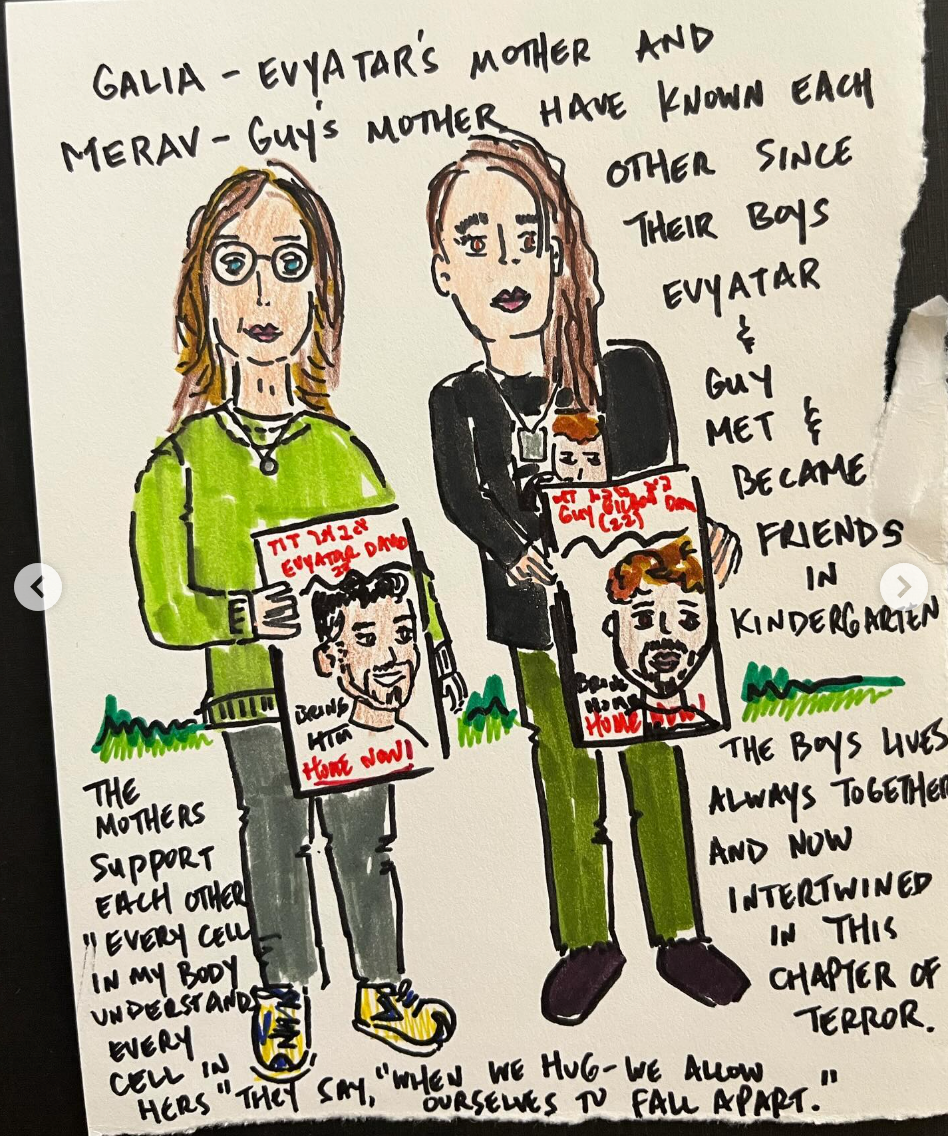 GALIA - EVYATAR'S MOTHER AND
MERAV - GUY'S MOTHER HAVE KNOWN EACH
OTHER SINCE
THEIR BOYS
EVYATAR
&
GUY
MET &
BECAME
FRIENDS
IN
KINDERGARTEN
EVYATAR DAVID
BRING
HIM
HOME NOW!
GUY
(22)
BRING
HOME NOW!
THE BOYS LIVES
ALWAYS TOGETHER
AND NOW
INTERTWINED
IN THIS
CHAPTER OF
TERROR.
THE
MOTHERS
SUPPORT
EACH OTHER
"EVERY CELL
IN MY BODY
UNDERSTANDS
EVERY
CELL IN
HERS" THEY SAY, "WHEN WE HUG - WE ALLOW
OURSELVES TO FALL APART."